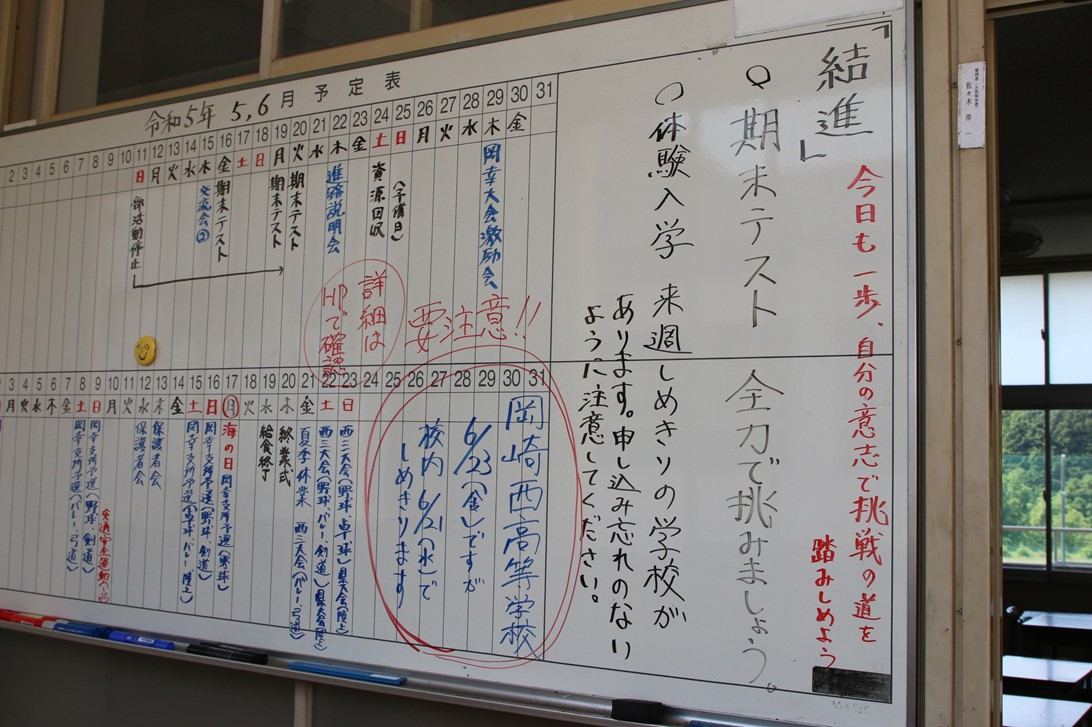 「結進」
今日も一歩、自分の意志で挑戦の道を
踏みしめよう
○期末テスト 全力で挑みましょう。
○体験入学 来週しめきりの学校が
あります。申し込み忘れのない
ように注意してください。
令和5年 5,6月 予定表
31
30 金
29 木 岡幸大会激励会
28 水
27 火
26 月
25 日 (予備日)
24 土 資源回収
23 金
22 木 進路説明会
21 水
20 火 期末テスト
19 月 期末テスト
18 日
17 土
16 金 期末テスト
15 木 交流会②
14 水
13 火
12 月
11 日 部活動停止
10
9
8
7
6
5
4
3
2
要注意!!
詳細は
HPで確認
31
30
29
28
27
26
25
24
岡崎西高等学校
6/23(金)ですが
校内 6/21(水)で
しめきります
23 日 西三大会(野球、卓球)県大会(陸上)
22 土 西三大会(野球、バレー、剣道)県大会(陸上)
21 金 夏季休業 西三大会(バレー、弓道)
20 木 終業式
19 水 給食終了
18 火
17 月 海の日 岡幸支所予選(野球)
16 日 岡幸支所予選(野球、剣道)
15 土 岡幸支所予選(卓球、バレー、陸上)
14 金
13 木 保護者会
12 水 保護者会
11 火
10 月 交通安全運動
9 日 岡幸支所予選(野球、剣道)
8 土 岡幸支所予選(バレー、弓道)
7 金
6 木
5 水
4 火
3 月
佐々木